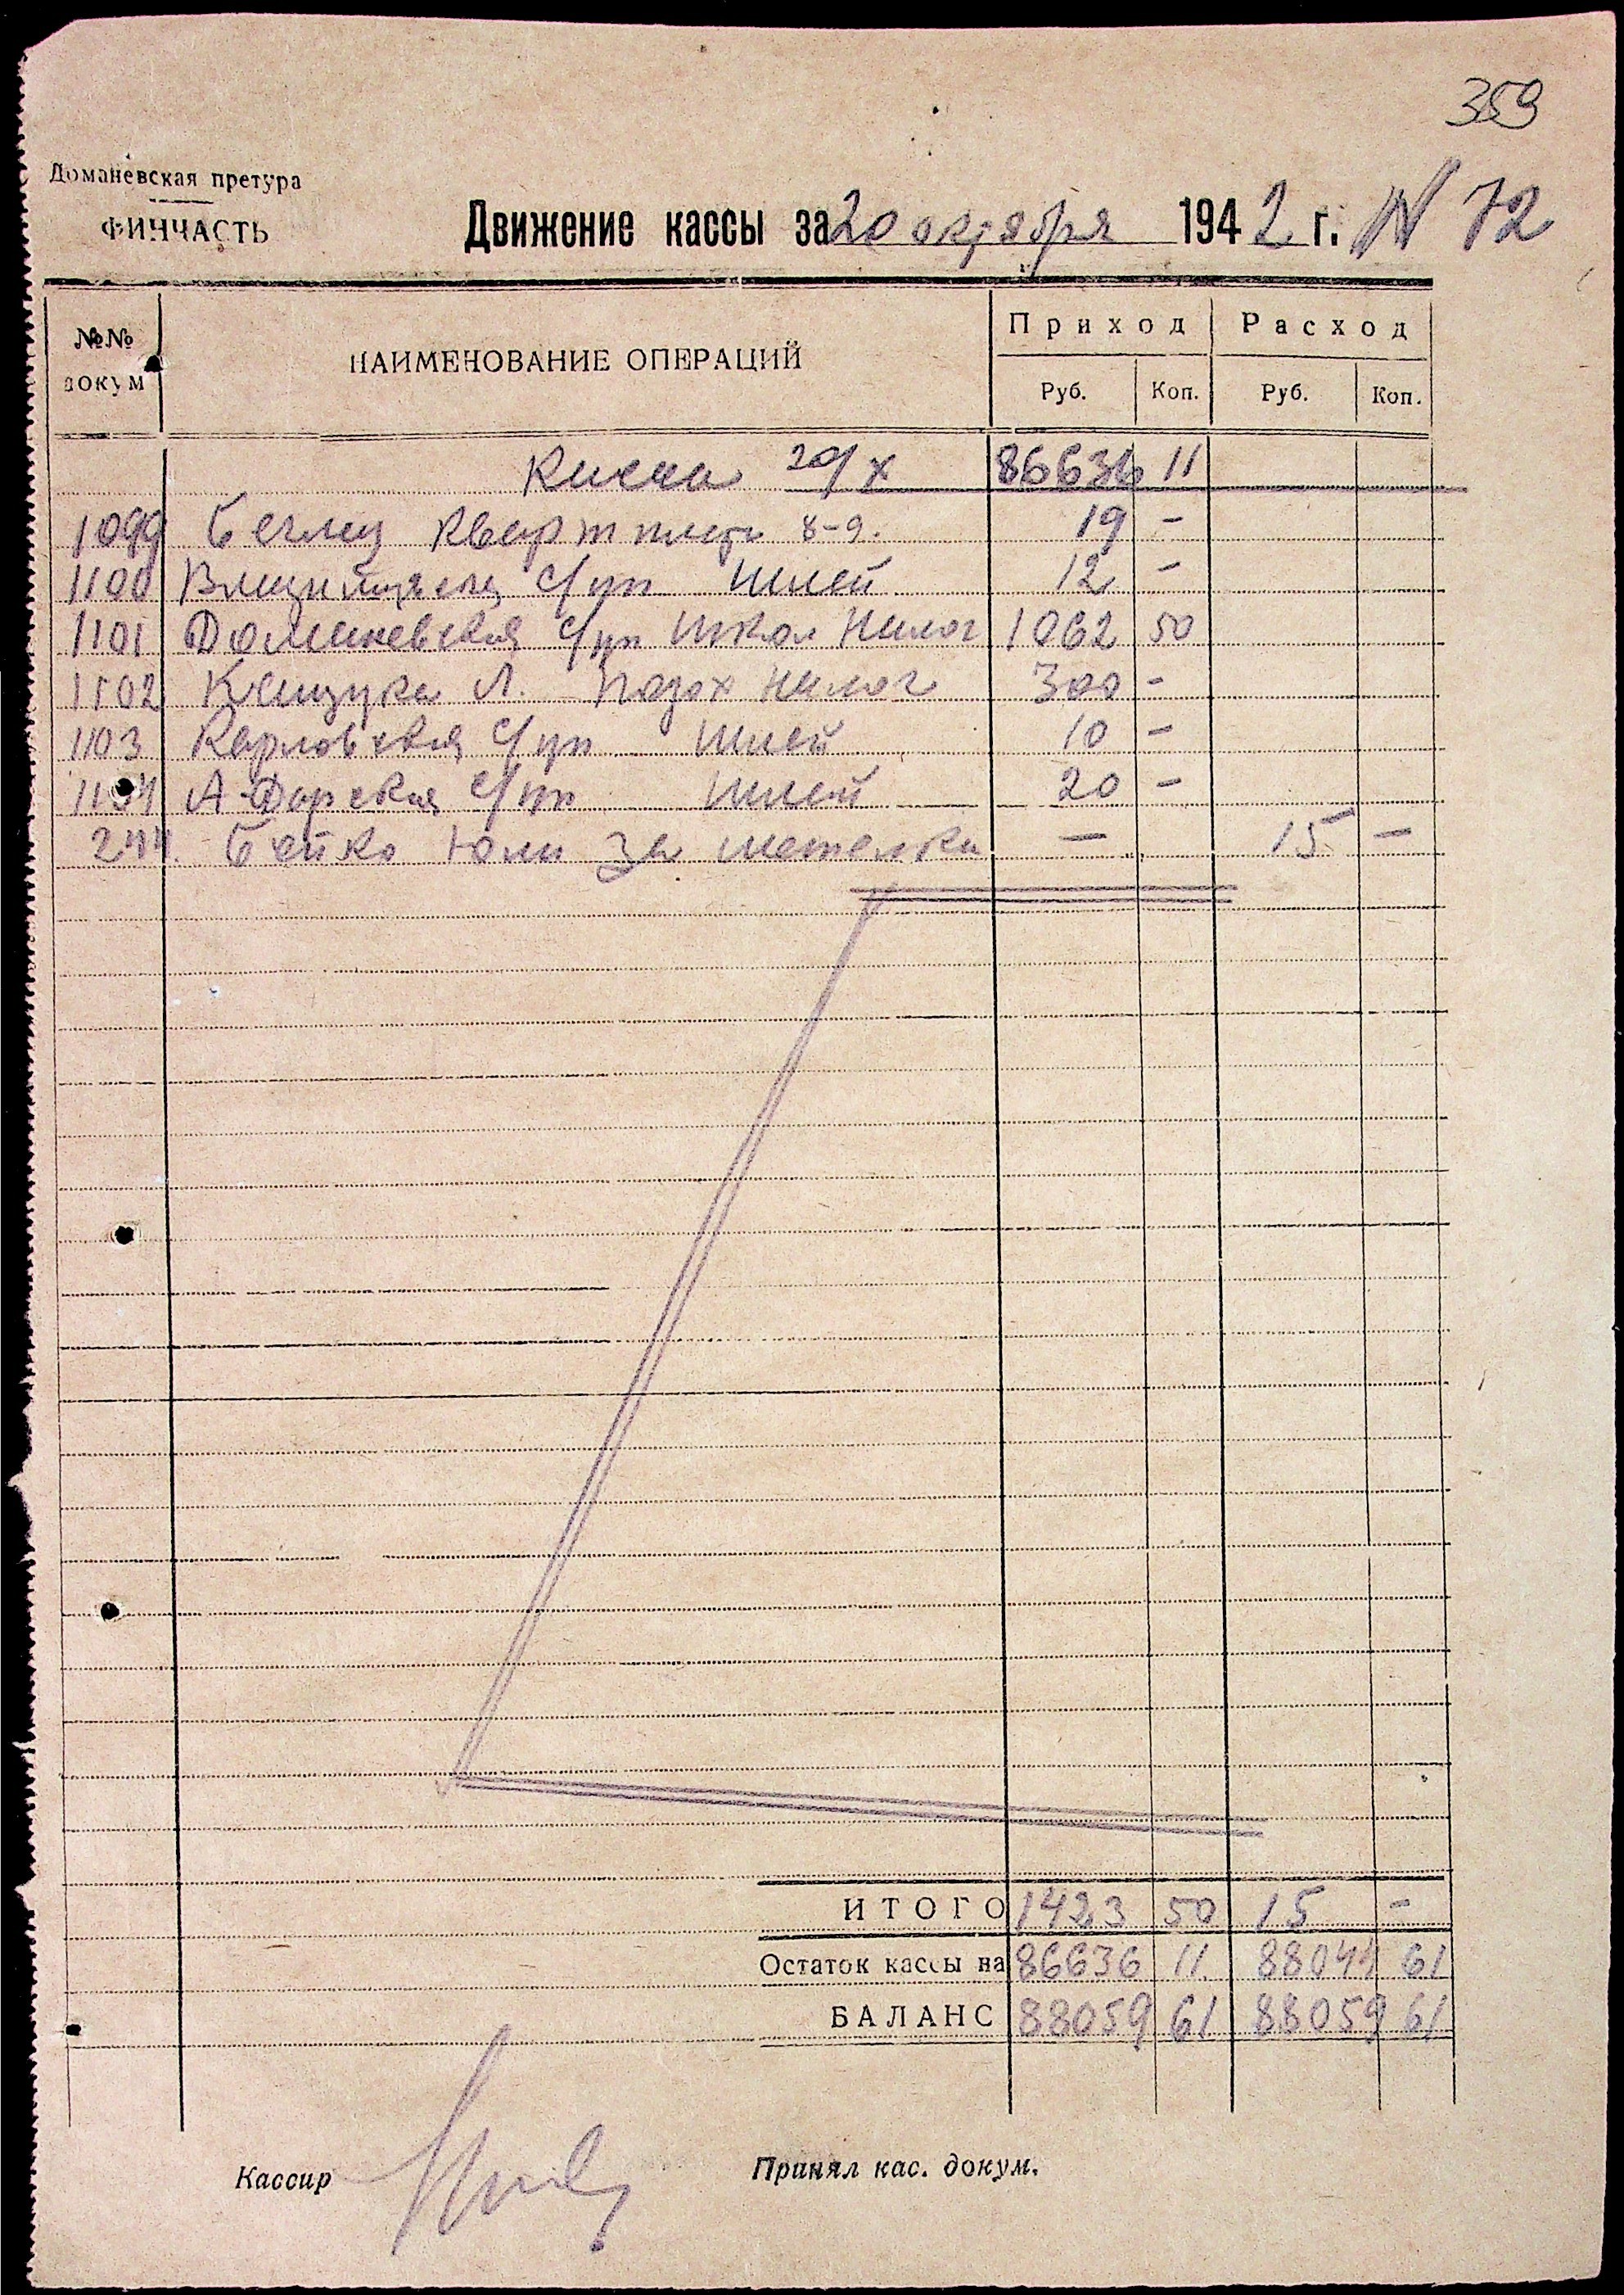 359
Доманевская претура
ФИНЧАСТЬ
Движение кассы за 20 октября 1942 г. N 72
№№ докум НАИМЕНОВАНИЕ ОПЕРАЦИЙ Приход Расход
Руб. Коп. Руб. Коп.
Касса 20/X 86636 11
1099 Кварт плата 8-9. 19 -
1100 с/уп 12 -
1101 Доманевская с/уп Школ Налог 1062 50
1102 Л. Налог 300 -
1103 Карловская с/уп 10 -
1104 А-Дарская с/уп 20 -
244. Бойко Юли За метелки — 15 —
ИТОГО 1423 50 15 -
Остаток кассы на 86636 11 88044 61
БАЛАНС 88059 61 88059 61
Кассир Принял кас. докум.